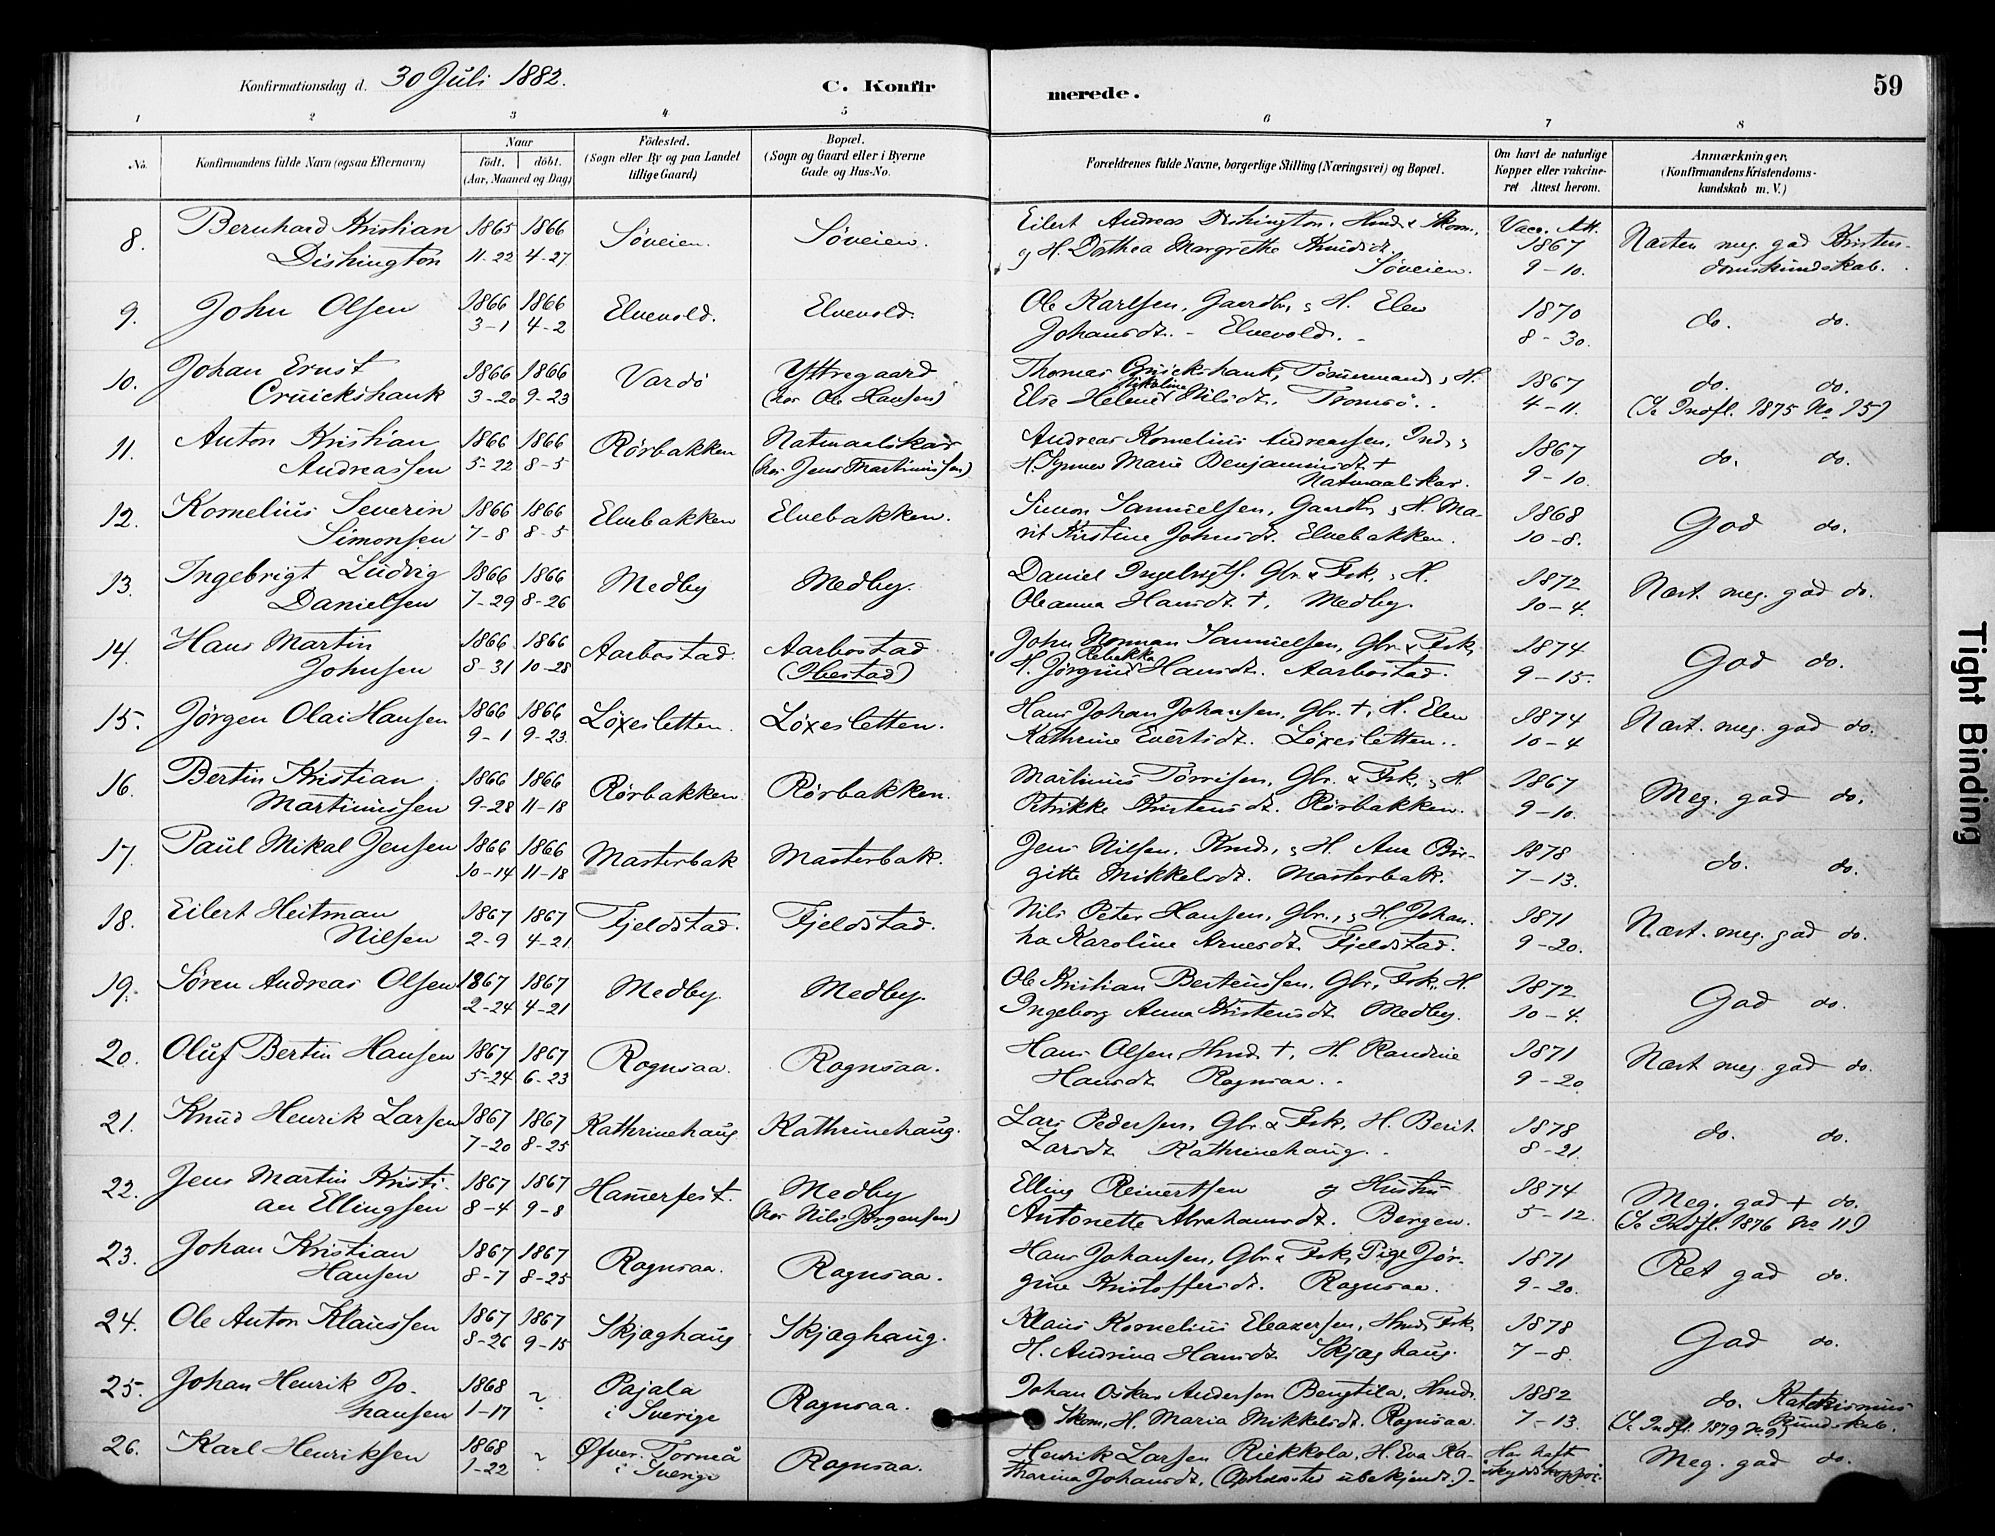 Konfirmationsdag d. 30 Juli 1882.
C. Konfirmerede.
59
1 2 3 4 5 6 7 8
No.
Konfirmandens fulde Navn (ogsaa Efternavn)
Naar
født. døbt.
(Aar, Maaned og Dag)
Fødested.
(Sogn eller By og paa Landet
tillige Gaard)
Bopæl.
(Sogn og Gaard eller i Byerne
Gade og Hus-No.
Forældrenes fulde Navne, borgerlige Stilling (Næringsvei) og Bopæl.
Om havt de naturlige
Kopper eller vakcine-
ret Attest herom.
Anmærkninger,
(Konfirmandens Kristendoms-
kundskab m. V.)
8. Bernhard Kristian 1865 1866 Søveien. Søveien. Eilert Andreas Dishington, Hmd. & Skom, Vacc. Att. Næsten meg. god Kristen-
Dishington 11-22 4-27 og H. Dorthea Margrethe Knudsdt. Søveien. 1867 9-10. domskundskab.
9. John Olsen 1866 1866 Elvevold. Elvevold. Ole Karlsen, Gaardbr, & H. Elen 1870 do. do.
3-1 4-2 Johansdt. - Elvevold. 8-30.
10. Johan Ernst 1866 1866 Vardö Yttregaard Thomas Cruickshank, Tømmermand, & H. 1867 do. do.
Cruickshank 3-20 9-23 (hos Ole Hansen) Else Helene Nikoline Nilsdt. Tromsö. 4-11. (Se Indfl. 1875 No 15)
11. Anton Kristian 1866 1866 Rørbakken Natmaalskar Andreas Kornelius Andreassen, Ind. & 1867 do. do.
Andreassen 5-22 8-5 (hos Jens Martinussen) H. Marie Benjaminsdt. + Natmaalskar. 9-10.
12. Kornelius Severin 1866 1866 Elvebakken Elvebakken. Simon Samuelsen, Gaardb, & H. Ma- 1868 God do.
Simonsen 7-8 8-5 rit Kirstine Johnsdt. Elvebakken. 10-8.
13. Ingebrigt Ludvig 1866 1866 Medby Medby. Daniel Ingebrigts. Gbr. & Fsk., & H. 1872 Næst. meg. god do.
Danielsen 7-29 8-26 Oleanna Hansdt +, Medby. 10-4.
14. Hans Martin 1866 1866 Aarbostad. Aarbostad John Norman Samuelsen, Gbr. & Fsk, 1874 God do.
Johnsen 8-31 10-28 (Ibestad) H. Jørgine Rebekka Hansdt. Aarbostad. 9-15.
15. Jørgen Olai Hansen 1866 1866 Løxesletten. Løxesletten. Hans Johan Johansen, Gbr. +, H. Elen 1874 Næst. meg. god do.
9-1 9-23. Kathrine Evertsdt. Løxesletten. 10-4
16. Bertin Kristian 1866 1866 Rørbakken. Rørbakken. Martinus Tørrisen, Gbr. & Fsk., & H. 1867 Meg. god do.
Martinussen 9-28 11-18 Petrikke Kristensdt. Rørbakken. 9-10.
17. Paul Mikal Jensen 1866 1866 Masterbak Masterbak. Jens Nilsen, Hmd., & H. Ane Bir- 1878 do. do.
10-14 11-18 gitte Mikkelsdt. Masterbak. 7-13.
18. Eilert Heitman 1867 1867 Fjeldstad. Fjeldstad. Nils Peter Hansen, Gbr., & H. Johan- 1871 Næst. meg. god do.
Nilsen 2-9 4-21 na Karoline Arnesdt. Fjeldstad. 9-20.
19. Søren Andreas Olsen 1867 1867 Medby. Medby. Ole Kristian Berteussen, Gbr., Fsk., H. 1872 God do.
2-24 4-21 Ingeborg Anna Kristensdt. Medby. 10-4.
20. Oluf Bertin Hansen 1867 1867 Rognsaa. Rognsaa. Hans Olsen Hmd. +, H. Randine 1871 Næst meg. god do.
5-24 6-23 Hansdt. Rognsaa. 9-20
21. Knud Henrik Larsen 1867 1867 Kathrinehaug Kathrinehaug. Lars Pedersen, Gbr. & Fsk, H. Berit 1878 do. do.
7-20 8-25 Larsdt. Kathrinehaug. 8-21.
22. Jens Martin Kristi- 1867 1867 Hamerfest. Medby Elling Reinertsen og Hustru 1874 Meg. god + do.
an Ellingsen 8-4 9-8 (hos Nils Jørgensen) Antonette Abrahamsdt. Bergen. 5-12. (Se Indfl. 1876 No 11)
23. Johan Kristian 1867 1867 Rognsaa. Rognsaa. Hans Johansen, Gbr. & Fsk, Pige Jør- 1871 Ret god do.
Hansen 8-7 8-25 gine Kristoffersdt. Rognsaa. 9-20.
24. Ole Anton Klaussen 1867 1867 Skjæghaug Skjæghaug. Klaus Kornelius Eleazersen, Hmd. Fsk, 1878 God do.
8-26 9-15 H. Andrina Hansdt. Skjæghaug. 7-8.
25. Johan Henrik Jo- 1868 ~ Pajala Rognsaa. Johan Oskar Anderson Bengtila, Hmd. 1882 do. Katekismus
hansen 1-17 i Sverige Skom, H. Maria Mikkelsdt. Rognsaa. 7-13. (Se Indfl. 1879 No 9) kundskab.
26. Karl Henriksen 1868 ~ Øfver Torneå Rognsaa. Henrik Larsen Riekkola, H. Eva Ka- Har haft Meg. god do.
1-22 i Sverige tharina Johansdt. (Opholdssted ubekjendt.)
Tight Binding